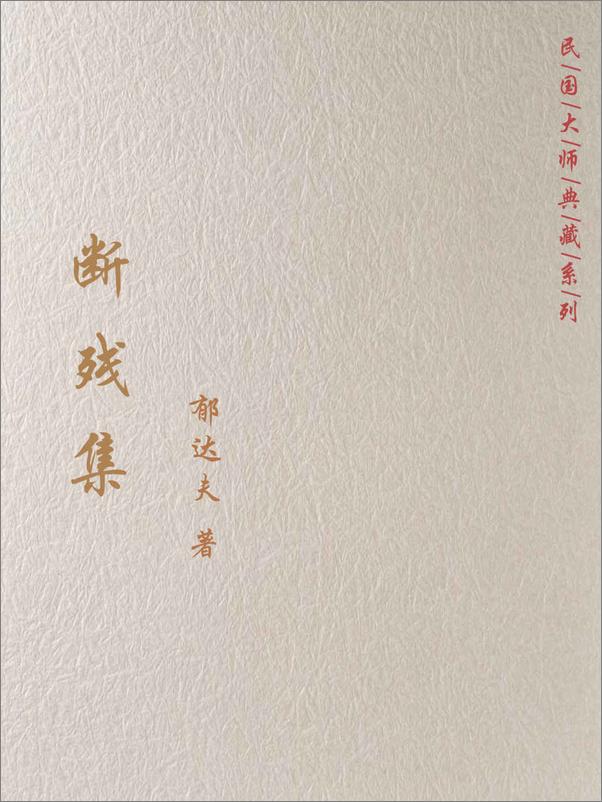 民|国|大|师|典|藏|系|列
断残集
郁达夫 著